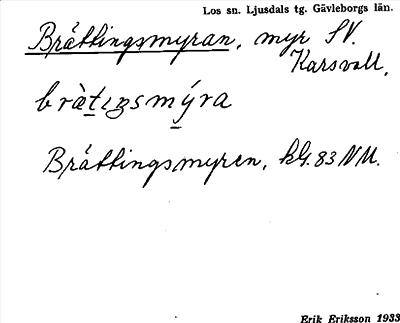 Los sn. Ljusdals tg. Gävleborgs län.
Bråttingsmyran, myr SV.
Karsvall,
bràtıŋsmýra
Bråttingsmyren, kG. 83 NU.
Erik Eriksson 1933